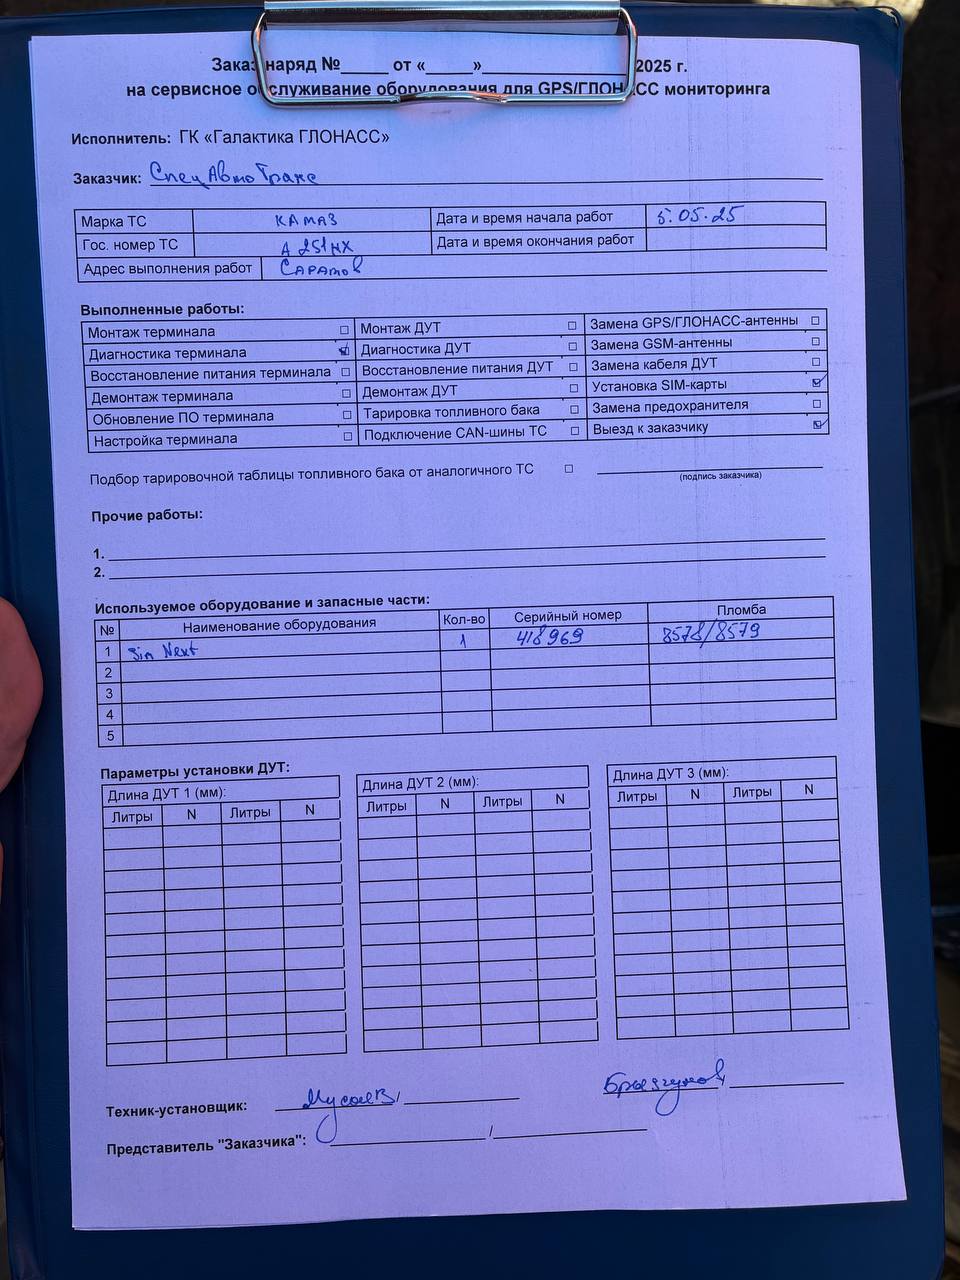 Заказ наряд №_____ от «_____»_______________ 2025 г.
на сервисное обслуживание оборудования для GPS/ГЛОНАСС мониторинга
Исполнитель: ГК «Галактика ГЛОНАСС»
Заказчик: СпецАвтоТранс
Марка ТС КАМАЗ Дата и время начала работ 5.05.25
Гос. номер ТС А 251 НХ Дата и время окончания работ
Адрес выполнения работ Саратов
Выполненные работы:
Монтаж терминала ☐ Монтаж ДУТ ☐ Замена GPS/ГЛОНАСС-антенны ☐
Диагностика терминала ☑ Диагностика ДУТ ☐ Замена GSM-антенны ☐
Восстановление питания терминала ☐ Восстановление питания ДУТ ☐ Замена кабеля ДУТ ☐
Демонтаж терминала ☐ Демонтаж ДУТ ☐ Установка SIM-карты ☑
Обновление ПО терминала ☐ Тарировка топливного бака ☐ Замена предохранителя ☐
Настройка терминала ☐ Подключение CAN-шины ТС ☐ Выезд к заказчику ☑
Подбор тарировочной таблицы топливного бака от аналогичного ТС ☐
(подпись заказчика)
Прочие работы:
1.
2.
Используемое оборудование и запасные части:
№ Наименование оборудования Кол-во Серийный номер Пломба
1 Sim Next 1 418969 8578/8579
2
3
4
5
Параметры установки ДУТ:
Длина ДУТ 1 (мм): Длина ДУТ 2 (мм): Длина ДУТ 3 (мм):
Литры N Литры N Литры N Литры N Литры N Литры N
Техник-установщик: Мусаев / Брызгунов
Представитель "Заказчика": /